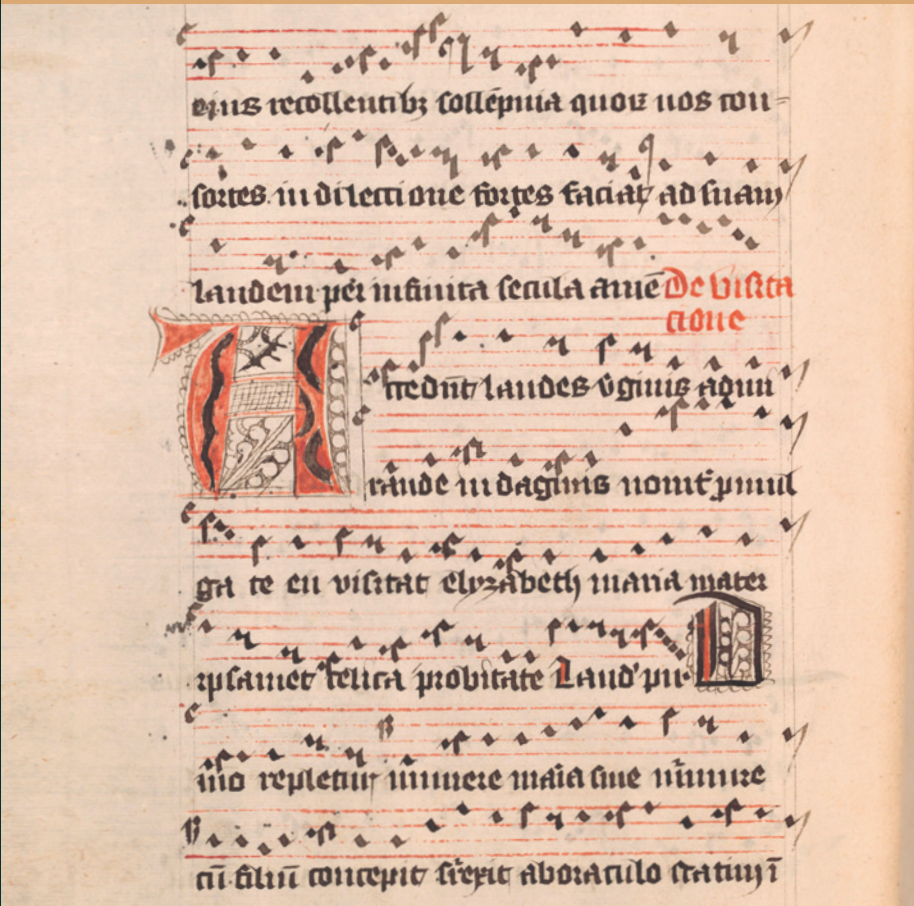 eius recollentibꝫ sollēpnia quoꝝ nos con-
sortes in dilectione fortes faciat ad suam
laudem per infinita secula amē De visita
cione
Accedūt laudes v̓ginis adm
rande indaginis
ga te en visitat elyzabeth maria mater
ipsamet felica probitate Laud'
mo repletur munere maīa sine
cū filiū concepit aboraculo statim ī